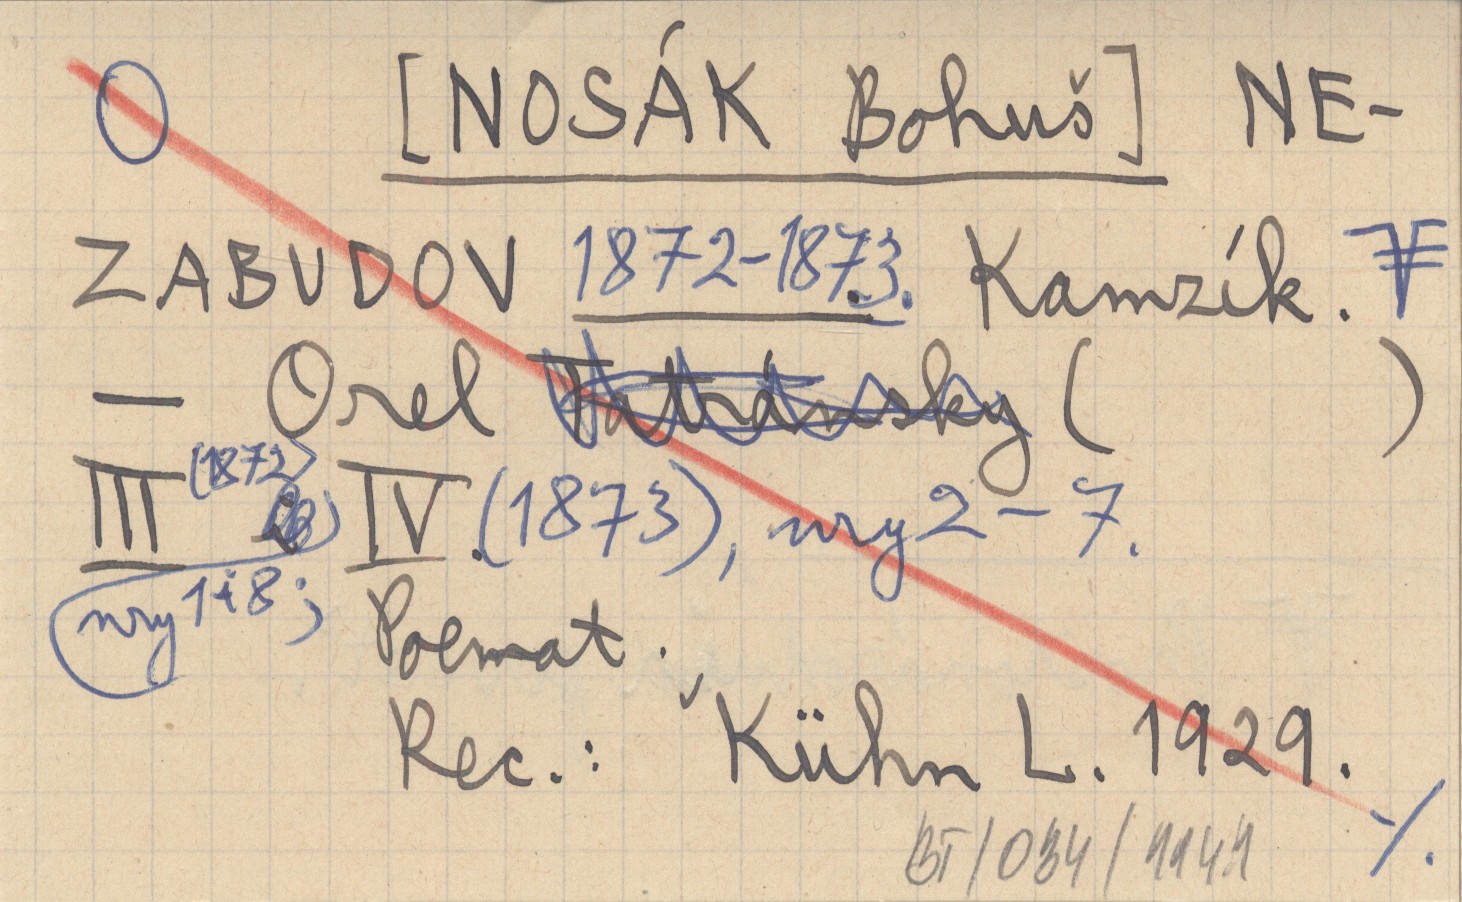 O [NOSÁK Bohuš] NE-
ZABUDOV 1872-1873. Kamzík.
— Orel Tatránsky ( )
III (1872) IV. (1873), nry 2-7.
nry 1 i 8;
Poemat.
Rec.: Kühn L. 1929.
BT/034/1141 ·/.